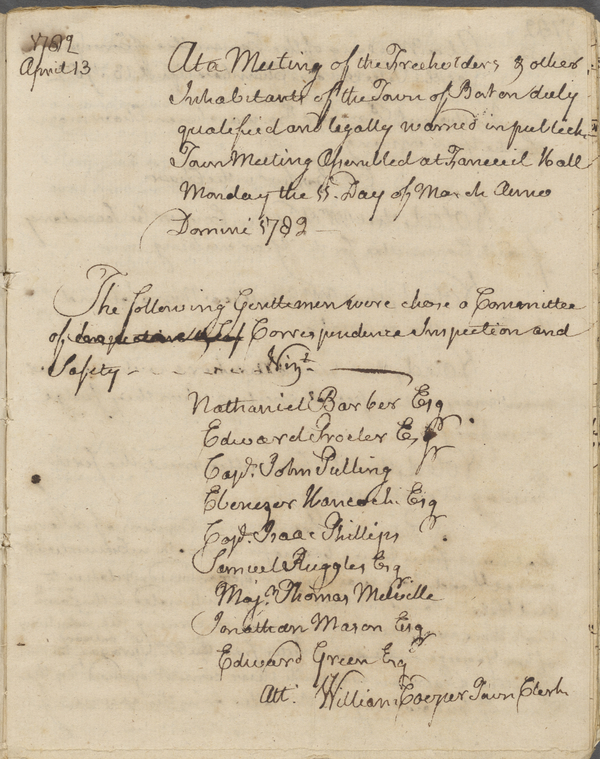 1782
April 13
At a Meeting of the Freeholders & other
Inhabitants of the Town of Boston duly
qualified and legally warned in publick
Town Meeting Assembled at Faneuil Hall
Monday the 11. Day of March Anno
Domini 1782
The following Gentlemen were chose a Committee
of Correspondence Inspection and
Safety Vizt.
Nathaniel Barber Esq
Edward Procter Esq
Capt. John Pulling
Ebenezer Hancock Esq
Capt. Isaac Phillips
Samuel Ruggles Esq
Majr. Thomas Melville
Jonathan Mason Esq
Edward Green Esq
Att. William Cooper Town Clerk